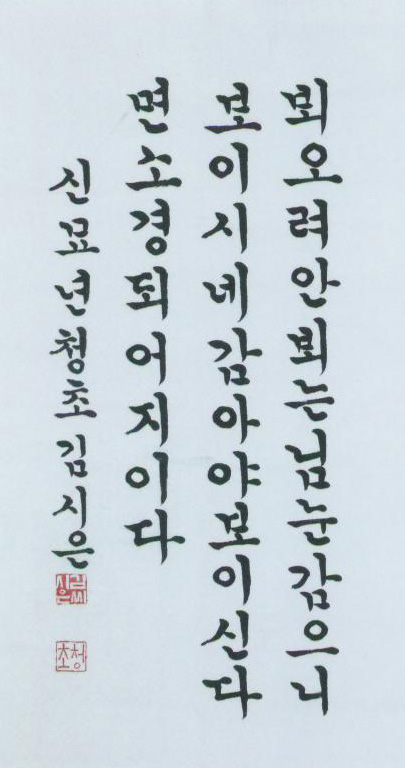 뵈오려안뵈는님눈감으니
보이시네감아야보이신다
면소경되어지이다
신묘년청초김시은
김씨시은
청초